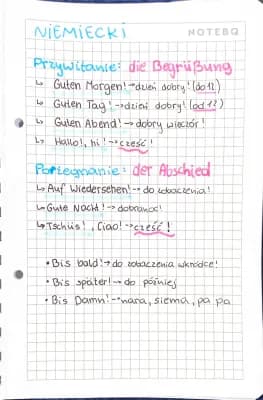 NIEMIECKI
NOTEBO
Przywitanie: die Begrüßung
↳ Guten Morgen! → dzień dobry! (do 12)
↳ Guten Tag! → dzień dobry! (od 12)
↳ Guten Abend! → dobry wieczór!
↳ Hallo!, hi! → cześć!
Pożegnanie: der Abschied
↳ Auf Wiedersehen! → do zobaczenia!
↳ Gute Nacht! → dobranoc!
↳ Tschüs!, Ciao! → cześć!
• Bis bald! → do zobaczenia wkrótce!
• Bis später! → do później
• Bis Damn! → nara, siema, pa pa